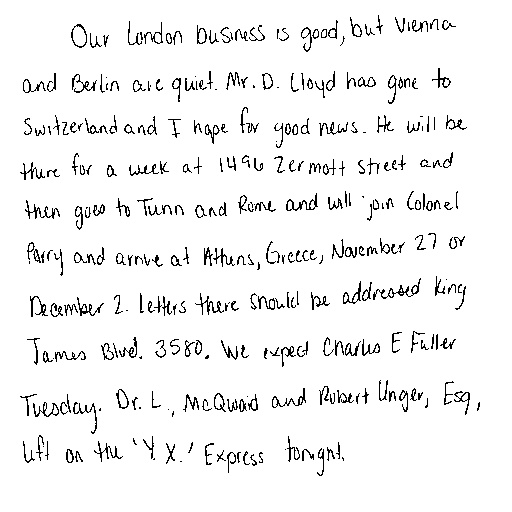 Our London business is good, but Vienna
and Berlin are quiet. Mr. D. Lloyd has gone to
Switzerland and I hope for good news. He will be
there for a week at 1496 Zermott street and
then goes to Turin and Rome and will join Colonel
Parry and arrive at Athens, Greece, November 27 or
December 2. letters there should be addressed King
James Blvd. 3580. We expect Charles E Fuller
Tuesday. Dr. L., McQuaid and Robert Unger, Esq,
left on the 'Y. X.' Express tonight.